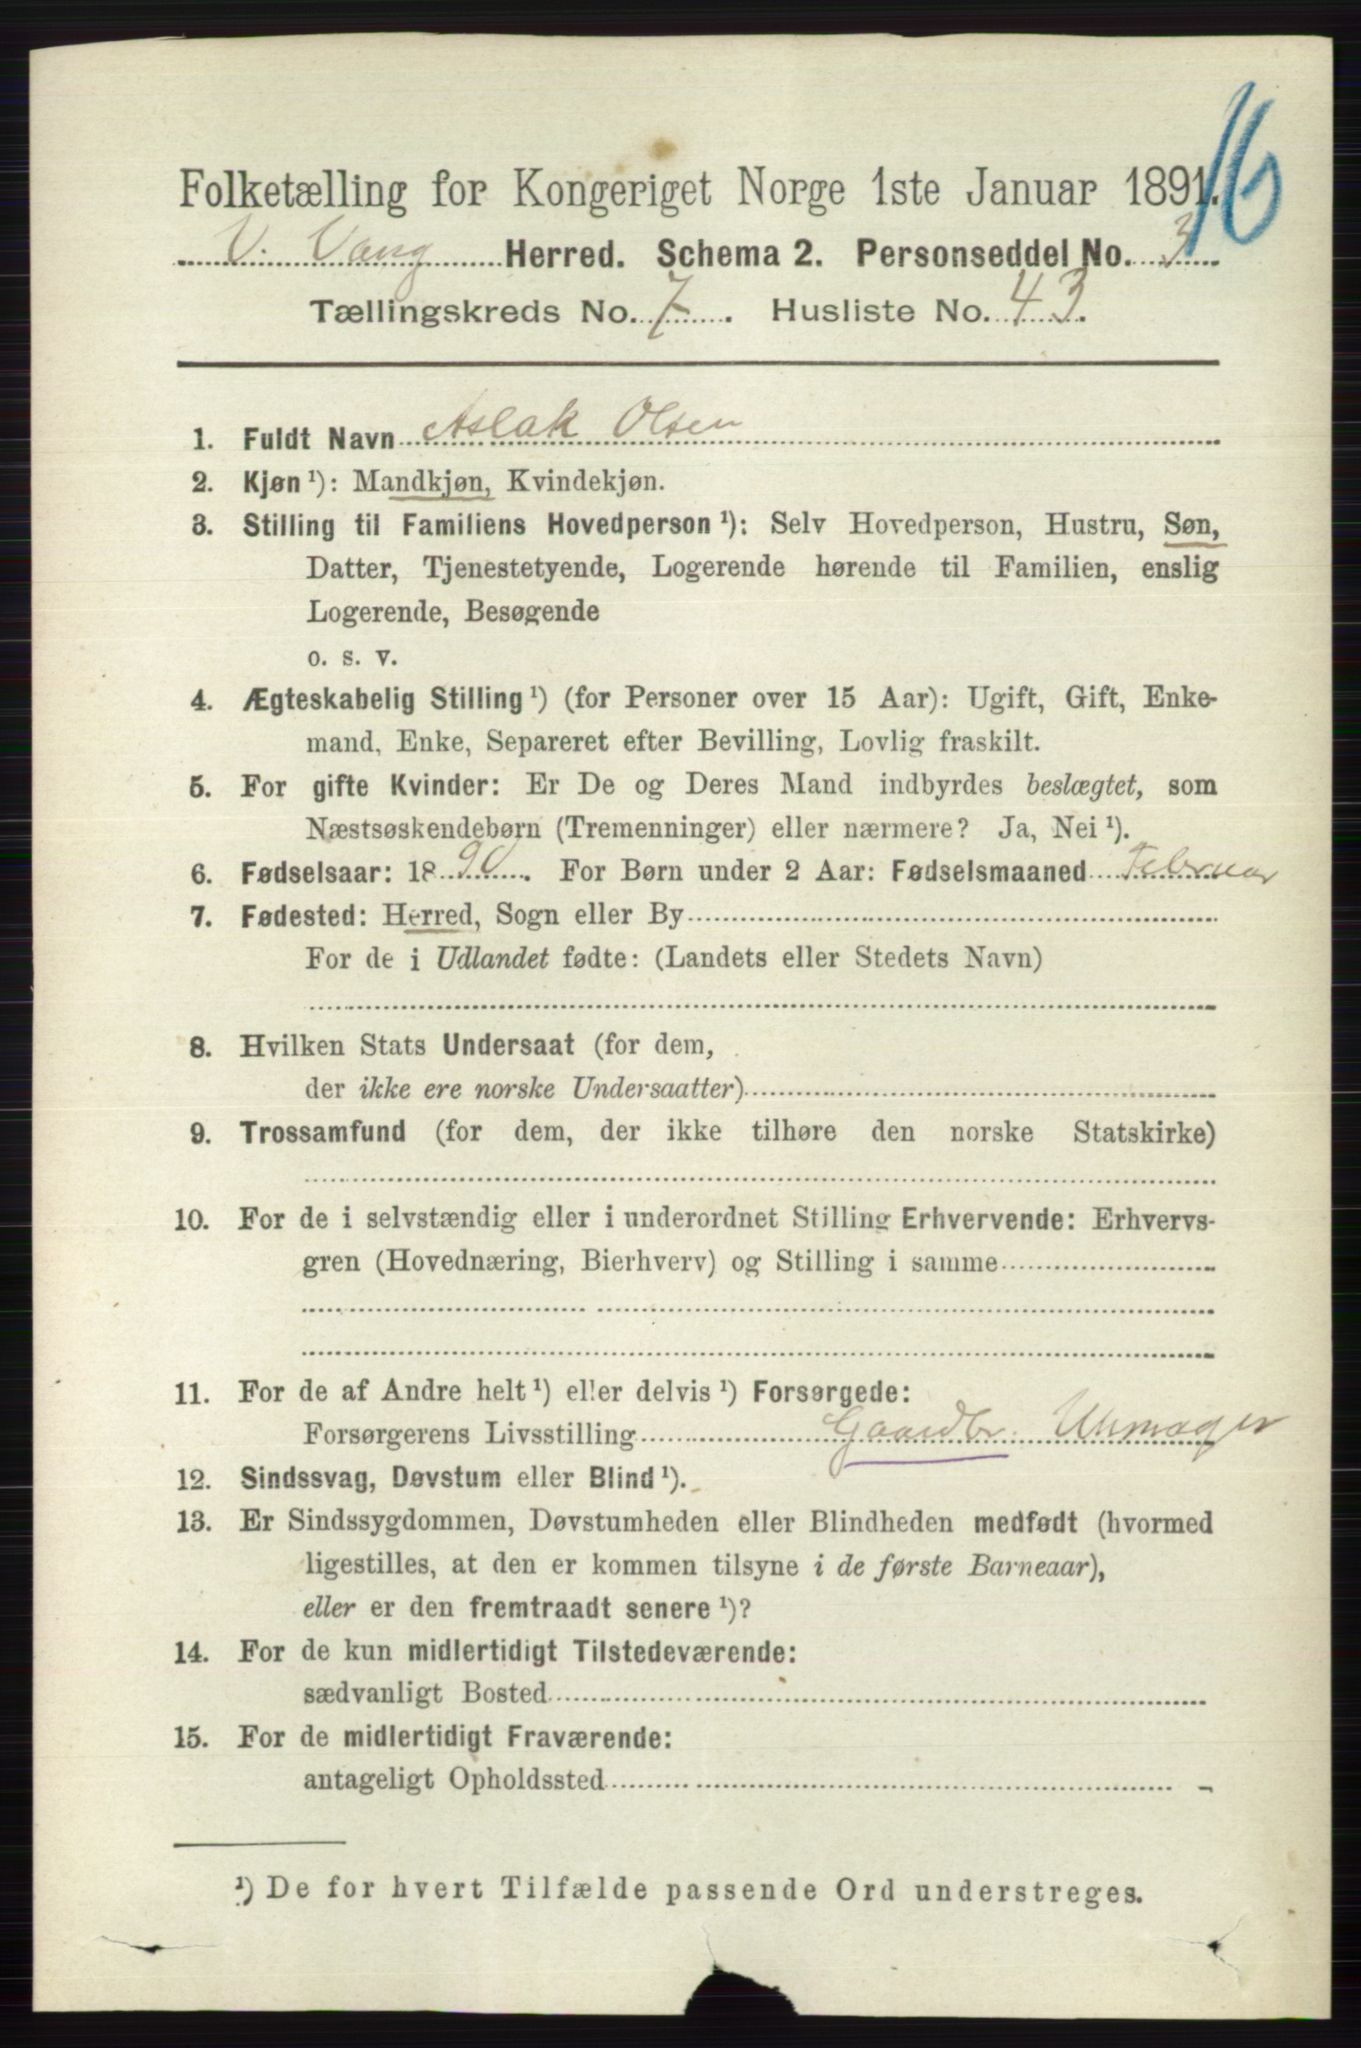 16
Folketælling for Kongeriget Norge 1ste Januar 1891.
V. Vang Herred. Schema 2. Personseddel No. 3
Tællingskreds No. 7. Husliste No. 43.
1. Fuldt Navn Aslak Olsen
2. Kjøn ¹): Mandkjøn, Kvindekjøn.
3. Stilling til Familiens Hovedperson ¹): Selv Hovedperson, Hustru, Søn,
Datter, Tjenestetyende, Logerende hørende til Familien, enslig
Logerende, Besøgende
o. s. v.
4. Ægteskabelig Stilling ¹) (for Personer over 15 Aar): Ugift, Gift, Enke-
mand, Enke, Separeret efter Bevilling, Lovlig fraskilt.
5. For gifte Kvinder: Er De og Deres Mand indbyrdes beslægtet, som
Næstsøskendebørn (Tremenninger) eller nærmere? Ja, Nei ¹).
6. Fødselsaar: 1890. For Børn under 2 Aar: Fødselsmaaned Februar
7. Fødested: Herred, Sogn eller By
For de i Udlandet fødte: (Landets eller Stedets Navn)
8. Hvilken Stats Undersaat (for dem,
der ikke ere norske Undersaatter)
9. Trossamfund (for dem, der ikke tilhøre den norske Statskirke)
10. For de i selvstændig eller i underordnet Stilling Erhvervende: Erhvervs-
gren (Hovednæring, Bierhverv) og Stilling i samme
11. For de af Andre helt ¹) eller delvis ¹) Forsørgede:
Forsørgerens Livsstilling Gaardbr. Uhrmager
12. Sindssvag, Døvstum eller Blind ¹).
13. Er Sindssygdommen, Døvstumheden eller Blindheden medfødt (hvormed
ligestilles, at den er kommen tilsyne i de første Barneaar),
eller er den fremtraadt senere ¹)?
14. For de kun midlertidigt Tilstedeværende:
sædvanligt Bosted
15. For de midlertidigt Fraværende:
antageligt Opholdssted
¹) De for hvert Tilfælde passende Ord understreges.